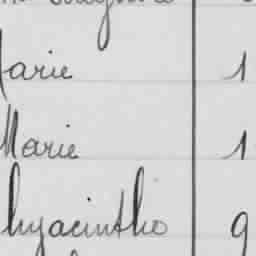 Marie 1
Marie 1
hyacinthe 9